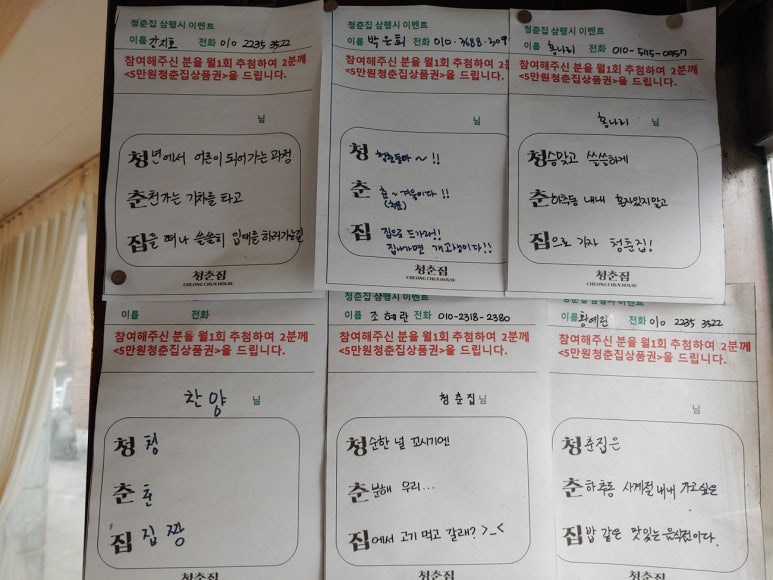 청춘집 삼행시 이벤트
이름 전화 010 2235 3522
참여해주신 분을 월1회 추첨하여 2분께
<5만원청춘집상품권>을 드립니다.
님
청년에서 어른이 되어가는 과정
춘천가는 기차를 타고
집을 떠나 쓸쓸히 입대를 하러가는길
청춘집
CHEONG CHUN HOUSE
청춘집 삼행시 이벤트
이름 박은희 전화 010-3688-309
참여해주신 분을 월1회 추첨하여 2분
<5만원청춘집상품권>을 드립니다.
님
청 청춘들아~!!
춘 ~겨울이다!!
집 집으로 드가라!!
집나가면 개고생이다!!
청춘집
CHEONG CHUN HOUSE
청춘집 삼행시 이벤트
이름 홍나리 전화 010-5115-0957
참여해주신 분을 월1회 추첨하여 2분께
<5만원청춘집상품권>을 드립니다.
홍나리 님
청승맞고 쓸쓸하게
춘하추동 내내 혼자있지말고
집으로 가자 청춘집!
청춘집
CHEONG CHUN HOUSE
이름 전화
참여해주신 분을 월1회 추첨하여 2분께
<5만원청춘집상품권>을 드립니다.
찬양 님
청 청
춘 춘
집 집 짱
청춘집
청춘집 삼행시 이벤트
이름 조혜란 전화 010-2318-2380
참여해주신 분을 월1회 추첨하여
<5만원청춘집상품권>을 드립니다.
청춘집님
청순한 널 꼬시기엔
춘분해 우리...
집에서 고기 먹고 갈래? >_<
청춘집
청춘집 삼행시 이벤트
이름 황예린 전화 010 2235 3522
참여해주신 분을 월1회 추첨하여 2분께
<5만원청춘집상품권>을 드립니다.
님
청춘집은
춘하추동 사계절 내내 가고싶은
집밥 같은 맛있는 음식점이다.
청춘집